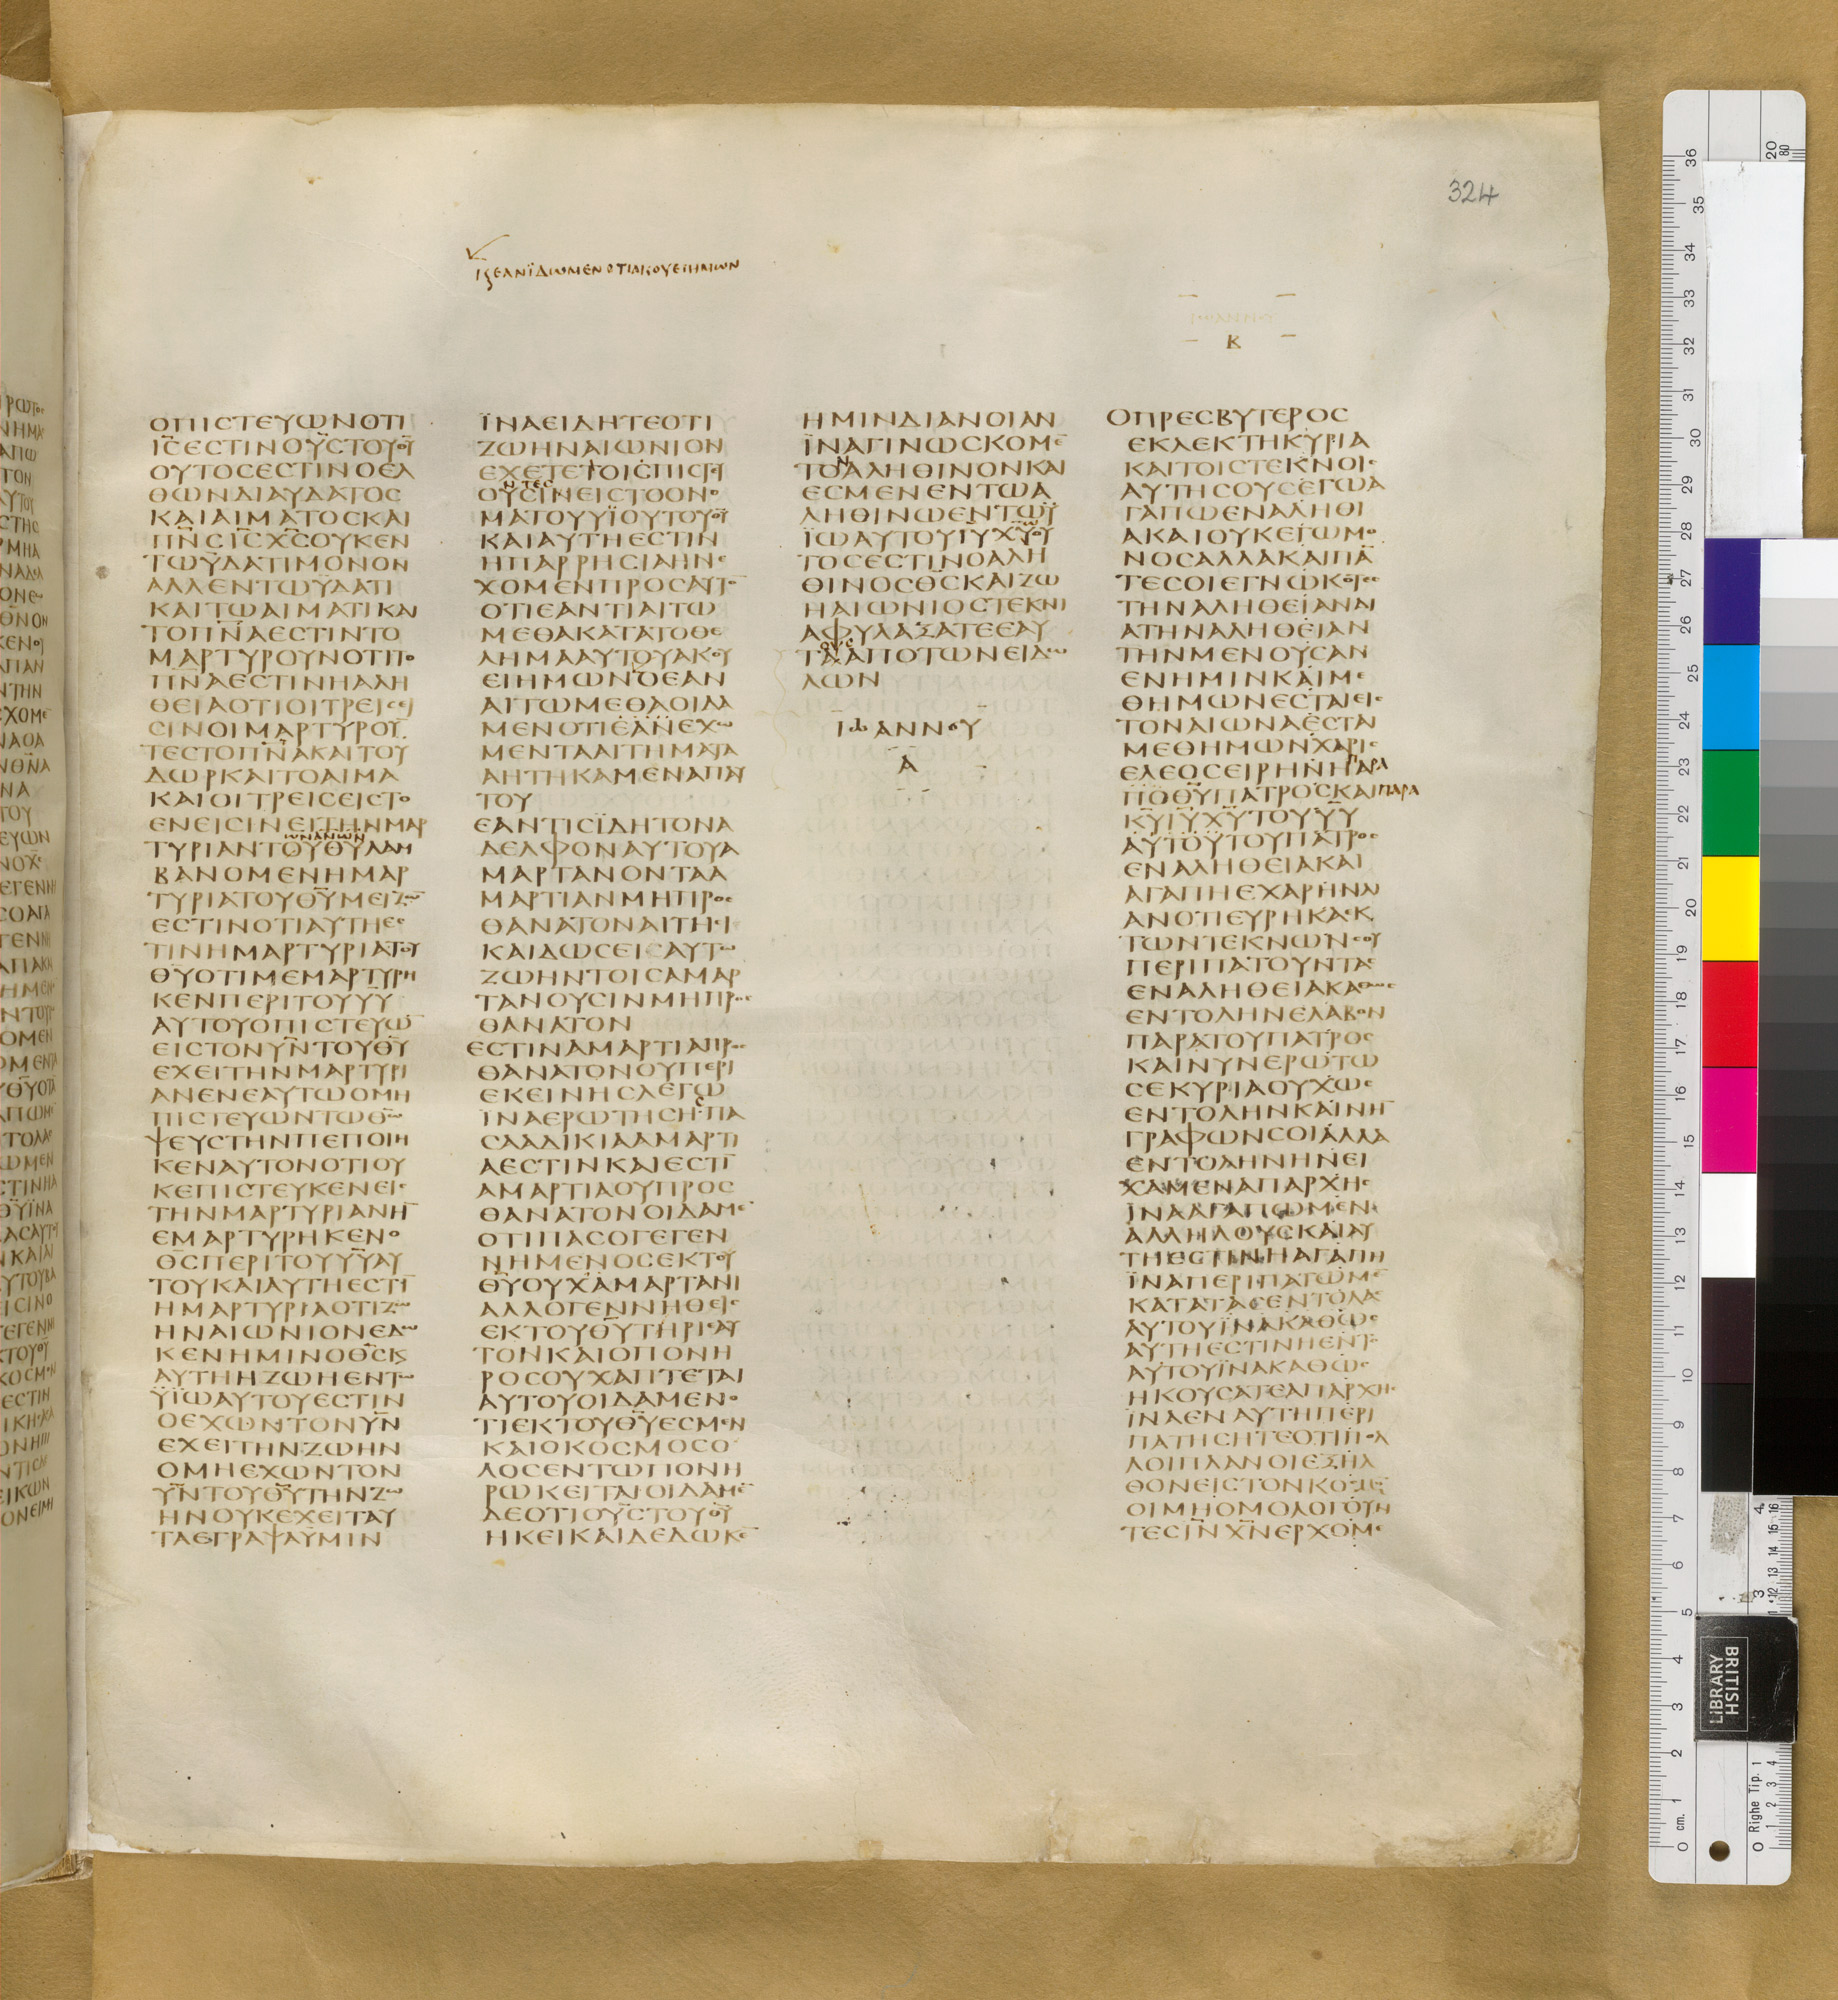 324
ΪϚΕΑΝΪΔΩΜΕΝΟΤΙΑΚΟΥΕΙΗΜΩΝ
Κ
ΟΠΙϹΤΕΥΩΝΟΤΙ
ΙϹΕϹΤΙΝΟΥϹΤΟΥΘΥ
ΟΥΤΟϹΕϹΤΙΝΟΕΛ
ΘΩΝΔΙΑΥΔΑΤΟϹ
ΚΑΙΑΙΜΑΤΟϹΚΑΙ
ΠΝϹΙϹΧϹΟΥΚΕΝ
ΤΩΥΔΑΤΙΜΟΝΟΝ
ΑΛΛΕΝΤΩΥΔΑΤΙ
ΚΑΙΤΩΑΙΜΑΤΙΚΑΙ
ΤΟΠΝΑΕϹΤΙΝΤΟ
ΜΑΡΤΥΡΟΥΝΟΤΙΤΟ
ΠΝΑΕϹΤΙΝΗΑΛΗ
ΘΕΙΑΟΤΙΟΙΤΡΕΙϹΕΙ
ϹΙΝΟΙΜΑΡΤΥΡΟΥ̅
ΤΕϹΤΟΠΝΑΚΑΙΤΟΥ
ΔΩΡΚΑΙΤΟΑΙΜΑ
ΚΑΙΟΙΤΡΕΙϹΕΙϹΤΟ
ΕΝΕΙϹΙΝΕΙΤΗΝΜΑΡ
ΤΩΝΑΝΩΝ
ΤΥΡΙΑΝΤΟΥΘΥΛΑΜ
ΒΑΝΟΜΕΝΗΜΑΡ
ΤΥΡΙΑΤΟΥΘΥΜΕΙΖΩ̅
ΕϹΤΙΝΟΤΙΑΥΤΗΕϹ
ΤΙΝΗΜΑΡΤΥΡΙΑΤΟΥ
ΘΥΟΤΙΜΕΜΑΡΤΥΡΗ
ΚΕΝΠΕΡΙΤΟΥΥΥ
ΑΥΤΟΥΟΠΙϹΤΕΥΩ̅
ΕΙϹΤΟΝΥΝΤΟΥΘΥ
ΕΧΕΙΤΗΝΜΑΡΤΥΡΙ
ΑΝΕΝΕΑΥΤΩΟΜΗ
ΠΙϹΤΕΥΩΝΤΩΘΩ
ΨΕΥϹΤΗΝΠΕΠΟΙΗ
ΚΕΝΑΥΤΟΝΟΤΙΟΥ
ΚΕΠΙϹΤΕΥΚΕΝΕΙϹ
ΤΗΝΜΑΡΤΥΡΙΑΝΗ̅
ΕΜΑΡΤΥΡΗΚΕΝΟ
ΘϹΠΕΡΙΤΟΥΥΥΑΥ
ΤΟΥΚΑΙΑΥΤΗΕϹΤΙ̅
ΗΜΑΡΤΥΡΙΑΟΤΙΖΩ
ΗΝΑΙΩΝΙΟΝΕΔΩ
ΚΕΝΗΜΙΝΟΘϹΚϚ
ΑΥΤΗΗΖΩΗΕΝΤΩ
ΥΪΩΑΥΤΟΥΕϹΤΙΝ
ΟΕΧΩΝΤΟΝΥΝ
ΕΧΕΙΤΗΝΖΩΗΝ
ΟΜΗΕΧΩΝΤΟΝ
ΥΝΤΟΥΘΥΤΗΝΖΩ
ΗΝΟΥΚΕΧΕΙΤΑΥ
ΤΑΕΓΡΑΨΑΥΜΙΝ
ΪΝΑΕΙΔΗΤΕΟΤΙ
ΖΩΗΝΑΙΩΝΙΟΝ
ΕΧΕΤΕΤΟΙϹΠΙϹΤΕΥ
ΝΤΕϹ
ΟΥϹΙΝΕΙϹΤΟΟΝΟ
ΜΑΤΟΥΥΪΟΥΤΟΥΘΥ
ΚΑΙΑΥΤΗΕϹΤΙΝ
ΗΠΑΡΡΗϹΙΑΗΝΕ
ΧΟΜΕΝΠΡΟϹΑΥΤΟ̅
ΟΤΙΕΑΝΤΙΑΙΤΩ
ΜΕΘΑΚΑΤΑΤΟΘΕ
ΛΗΜΑΑΥΤΟΥΑΚΟΥ
ΕΙΗΜΩΝΟΕΑΝ
ΑΙΤΩΜΕΘΑΟΙΔΑ
ΜΕΝΟΤΙΕΑΝΕΧΩ
ΜΕΝΤΑΑΙΤΗΜΑΤΑ
ΑΗΤΗΚΑΜΕΝΑΠΑΥ
ΤΟΥ
ΕΑΝΤΙϹΪΔΗΤΟΝΑ
ΔΕΛΦΟΝΑΥΤΟΥΑ
ΜΑΡΤΑΝΟΝΤΑΑ
ΜΑΡΤΙΑΝΜΗΠΡΟϹ
ΘΑΝΑΤΟΝΑΙΤΗϹΙ
ΚΑΙΔΩϹΕΙϹΑΥΤΩ
ΖΩΗΝΤΟΙϹΑΜΑΡ
ΤΑΝΟΥϹΙΝΜΗΠΡΟϹ
ΘΑΝΑΤΟΝ
ΕϹΤΙΝΑΜΑΡΤΙΑΠΡΟϹ
ΘΑΝΑΤΟΝΟΥΠΕΡΙ
ΕΚΕΙΝΗϹΛΕΓΩ
ΪΝΑΕΡΩΤΗϹΗϹΠΑ
ϹΑΑΔΙΚΙΑΑΜΑΡΤΙ
ΑΕϹΤΙΝΚΑΙΕϹΤΙ̅
ΑΜΑΡΤΙΑΟΥΠΡΟϹ
ΘΑΝΑΤΟΝΟΙΔΑΜΕ̅
ΟΤΙΠΑϹΟΓΕΓΕΝ
ΝΗΜΕΝΟϹΕΚΤΟΥ
ΘΥΟΥΧΑΜΑΡΤΑΝΙ
ΑΛΛΟΓΕΝΝΗΘΕΙϹ
ΕΚΤΟΥΘΥΤΗΡΙΕΑΥ
ΤΟΝΚΑΙΟΠΟΝΗ
ΡΟϹΟΥΧΑΠΤΕΤΑΙ
ΑΥΤΟΥΟΙΔΑΜΕΝΟ
ΤΙΕΚΤΟΥΘΥΕϹΜΕΝ
ΚΑΙΟΚΟϹΜΟϹΟ
ΛΟϹΕΝΤΩΠΟΝΗ
ΡΩΚΕΙΤΑΙΟΙΔΑΜΕ̅
ΔΕΟΤΙΟΥϹΤΟΥΘΥ
ΗΚΕΙΚΑΙΔΕΔΩΚΕ̅
ΗΜΙΝΔΙΑΝΟΙΑΝ
ΪΝΑΓΙΝΩϹΚΟΜΕ̅
Ν
ΤΟΑΛΗΘΙΝΟΝΚΑΙ
ΕϹΜΕΝΕΝΤΩΑ
ΛΗΘΙΝΩΕΝΤΩΥ
ΪΩΑΥΤΟΥΙΥΧΥΟΥ
ΤΟϹΕϹΤΙΝΟΑΛΗ
ΘΙΝΟϹΘϹΚΑΙΖΩ
ΗΑΙΩΝΙΟϹΤΕΚΝΙ
ΑΦΥΛΑΞΑΤΕΕΑΥ
ΟΥϹ
ΤΑΑΠΟΤΩΝΕΙΔΩ
ΛΩΝ
ΙΩΑΝΝΟΥ
Α
ΟΠΡΕϹΒΥΤΕΡΟϹ
ΕΚΛΕΚΤΗΚΥΡΙΑ
ΚΑΙΤΟΙϹΤΕΚΝΟΙϹ
ΑΥΤΗϹΟΥϹΕΓΩΑ
ΓΑΠΩΕΝΑΛΗΘΙ
ΑΚΑΙΟΥΚΕΓΩΜΟ
ΝΟϹΑΛΛΑΚΑΙΠΑ̅
ΤΕϹΟΙΕΓΝΩΚΟΤΕϹ
ΤΗΝΑΛΗΘΕΙΑΝΔΙ
ΑΤΗΝΑΛΗΘΕΙΑΝ
ΤΗΝΜΕΝΟΥϹΑΝ
ΕΝΗΜΙΝΚΑΙΜΕ
ΘΗΜΩΝΕϹΤΑΙΕΙϹ
ΤΟΝΑΙΩΝΑΕϹΤΑΙ
ΜΕΘΗΜΩΝΧΑΡΙϹ
ΕΛΕΟϹΕΙΡΗΝΗΠΑΡΑ
ΠΟΘΥΠΑΤΡΟϹΚΑΙΠΑΡΑ
ΚΥΙΥΧΥΤΟΥΥΥ
ΑΥΤΟΥΤΟΥΠΑΤΡΟϹ
ΕΝΑΛΗΘΕΙΑΚΑΙ
ΑΓΑΠΗΕΧΑΡΗΝΛΙ
ΑΝΟΤΙΕΥΡΗΚΑΕΚ
ΤΩΝΤΕΚΝΩΝϹΟΥ
ΠΕΡΙΠΑΤΟΥΝΤΑϹ
ΕΝΑΛΗΘΕΙΑΚΑΘΩϹ
ΕΝΤΟΛΗΝΕΛΑΒΟΝ
ΠΑΡΑΤΟΥΠΑΤΡΟϹ
ΚΑΙΝΥΝΕΡΩΤΩ
ϹΕΚΥΡΙΑΟΥΧΩϹ
ΕΝΤΟΛΗΝΚΑΙΝΗ̅
ΓΡΑΦΩΝϹΟΙΑΛΛΑ
ΕΝΤΟΛΗΝΗΝΕΙ
ΧΑΜΕΝΑΠΑΡΧΗϹ
ΪΝΑΑΓΑΠΩΜΕΝ
ΑΛΛΗΛΟΥϹΚΑΙΑΥ
ΤΗΕϹΤΙΝΗΑΓΑΠΗ
ΪΝΑΠΕΡΙΠΑΤΩΜΕ̅
ΚΑΤΑΤΑϹΕΝΤΟΛΑϹ
ΑΥΤΟΥΪΝΑΚΑΘΩϹ
ΑΥΤΗΕϹΤΙΝΗΕΝΤΟ
ΑΥΤΟΥΪΝΑΚΑΘΩϹ
ΗΚΟΥϹΑΤΕΑΠΑΡΧΗϹ
ΪΝΑΕΝΑΥΤΗΠΕΡΙ
ΠΑΤΗϹΗΤΕΟΤΙΠΟΛ
ΛΟΙΠΛΑΝΟΙΕΞΗΛ
ΘΟΝΕΙϹΤΟΝΚΟϹΜΟ̅
ΟΙΜΗΟΜΟΛΟΓΟΥΝ
ΤΕϹΙΝΧΝΕΡΧΟΜΕ
BRITISH
LIBRARY